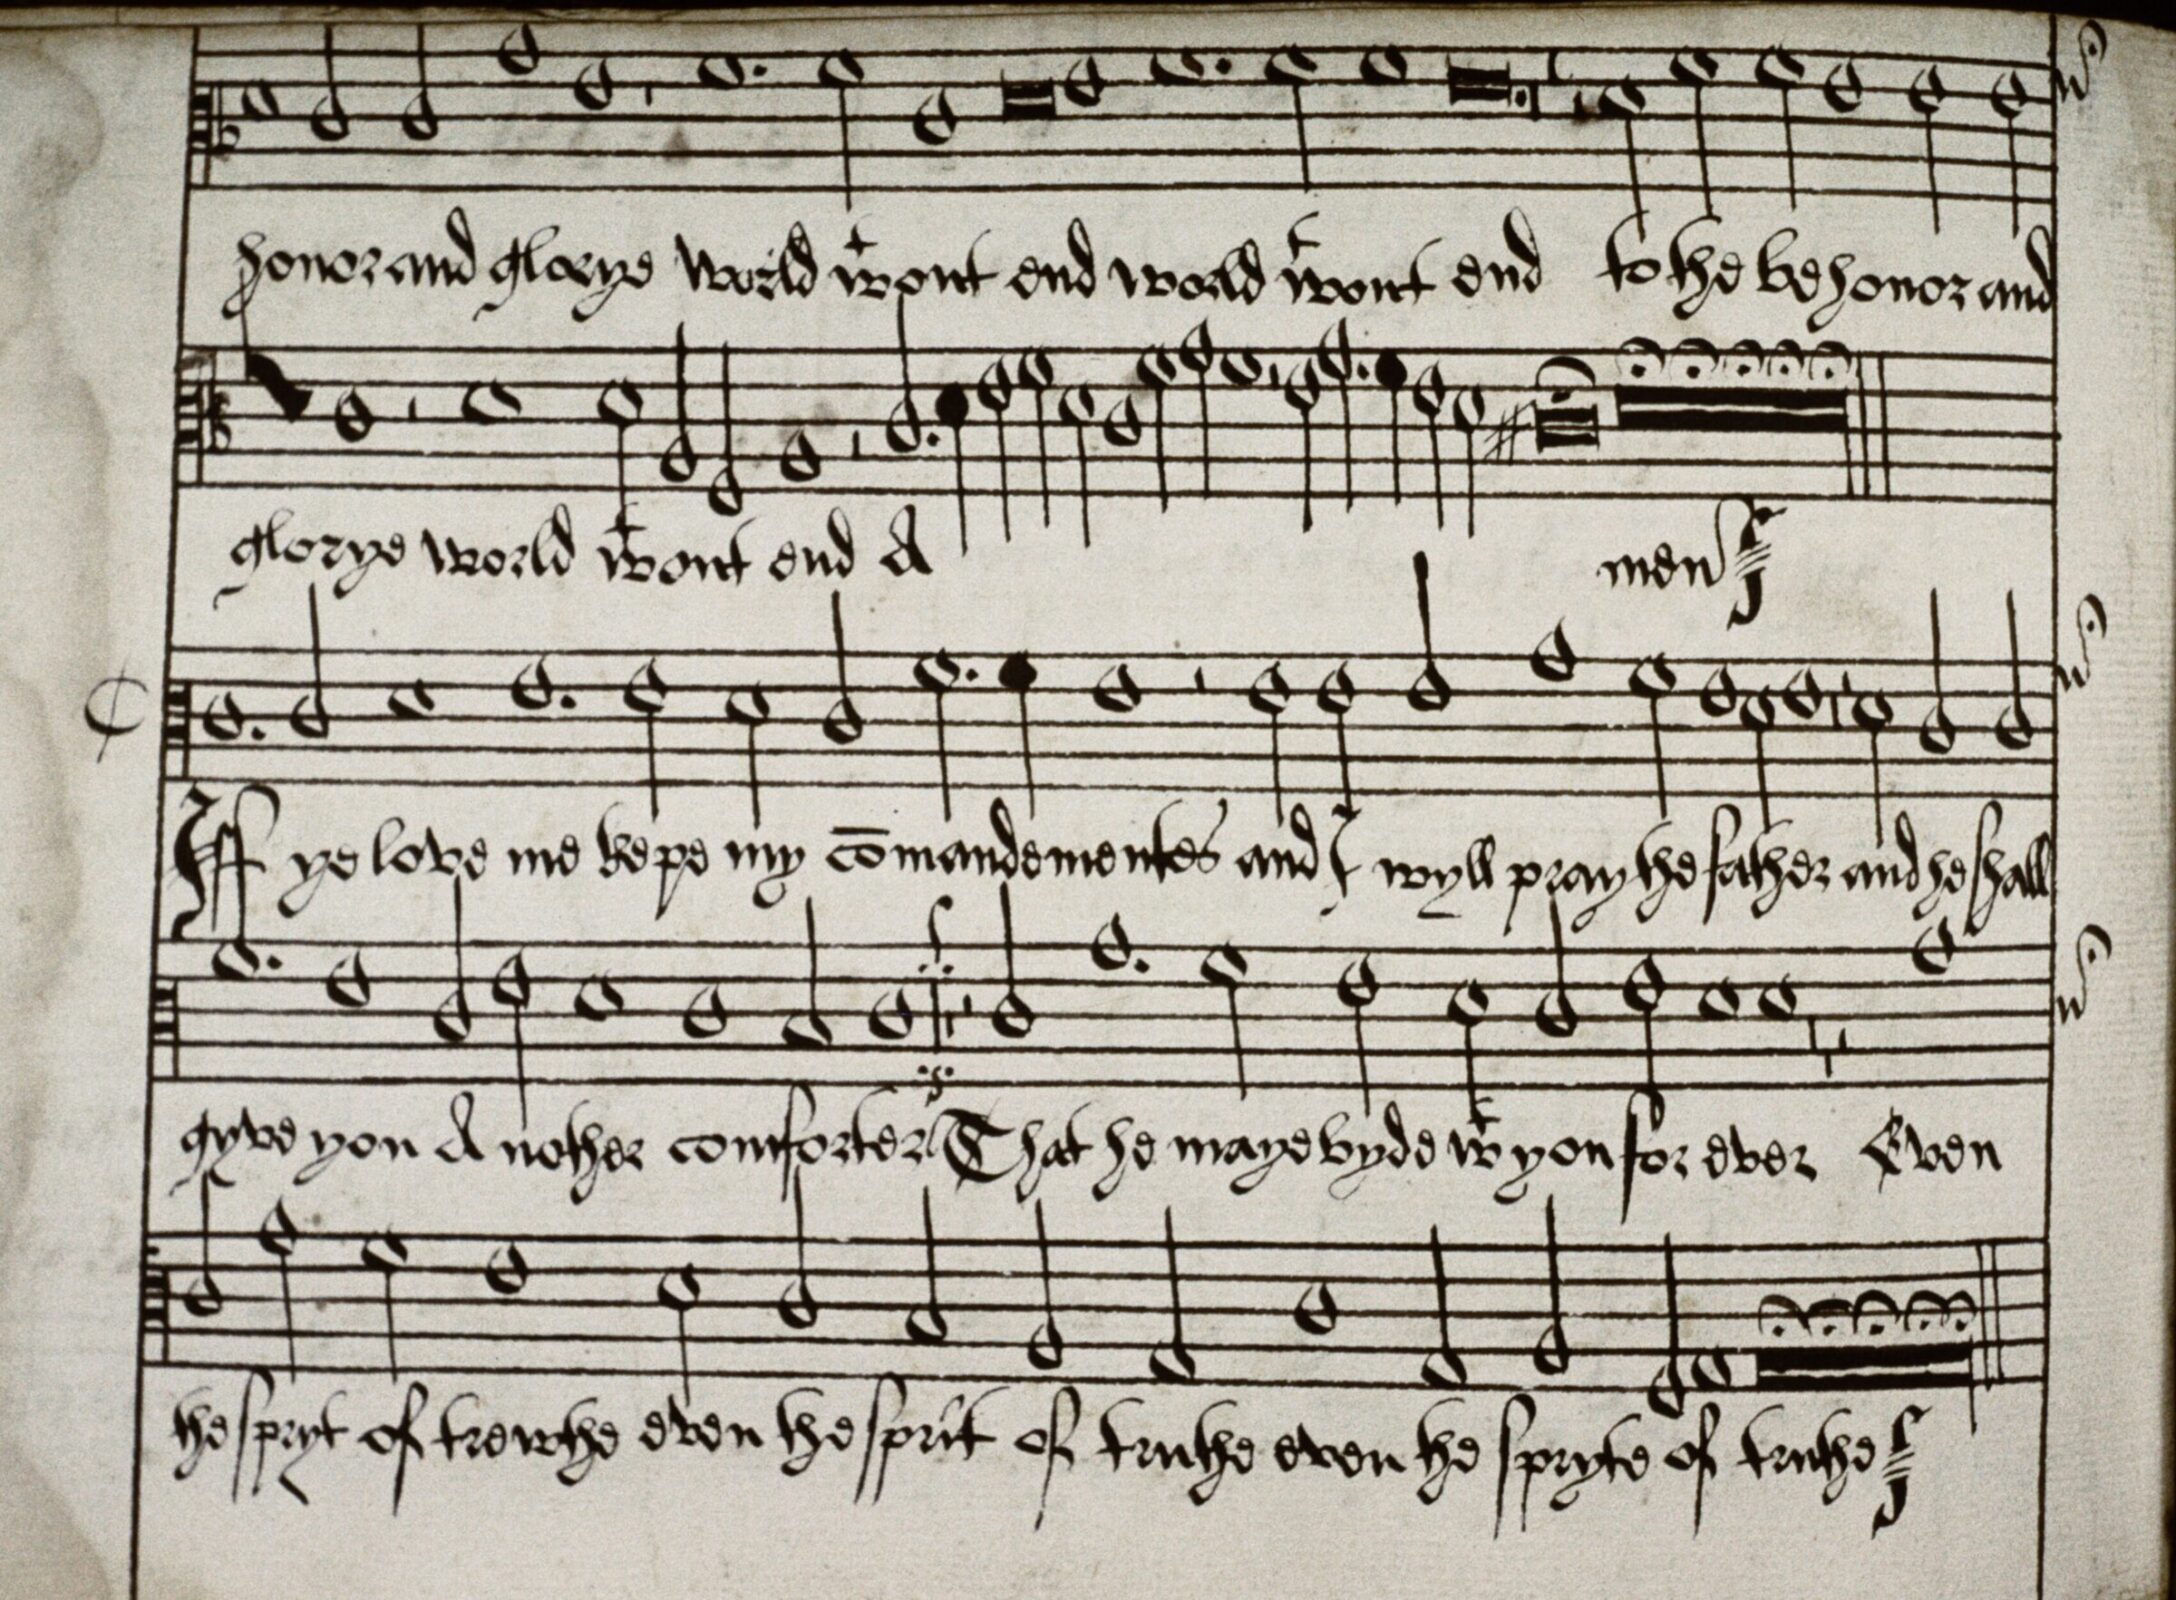 honor and glorye world wᵗ out end world wᵗ out end to the be honor and
glorye world wᵗ out end A men
Iff ye love me kepe my cōmandementes and I wyll pray the father and he shall
gyve you A nother comforter That he maye byde wᵗ you for ever Even
the spryt of trewthe even the sprit of truthe even the spryte of truthe